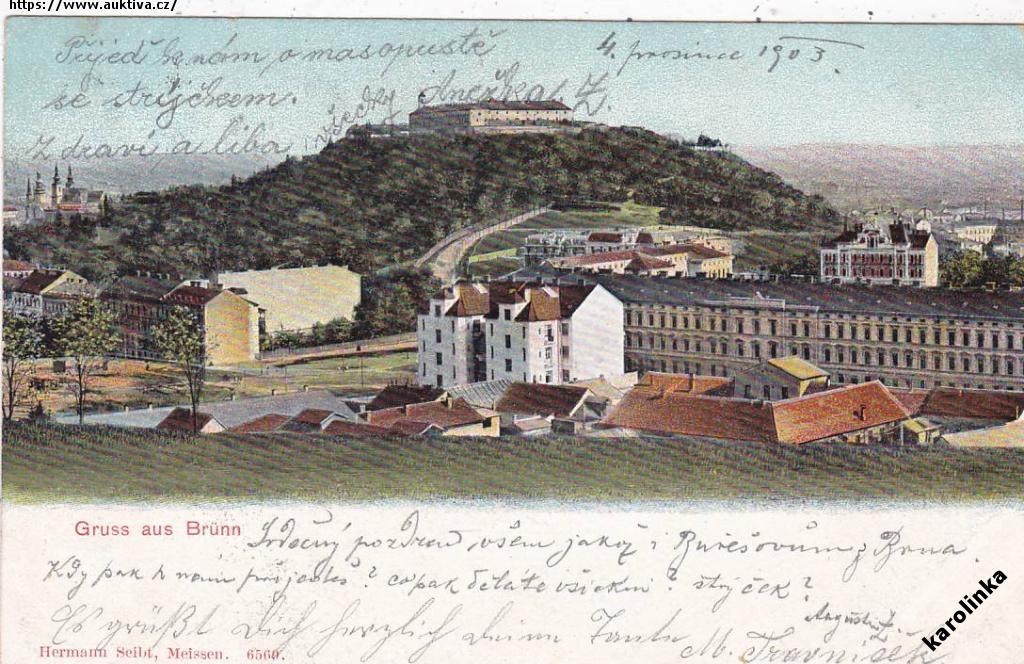 https://www.auktiva.cz/
Přijeď k nám o masopustě
4. prosince 1903.
se strýčkem.
Zdraví a líbá všecky Anežka Z.
Gruss aus Brünn
Srdečný pozdrav všem jakož i Burešovům z Brna.
Kdy pak k nám přijedeš? copak děláte všickni? strýček?
Augustin Z.
Es grüßt Dich herzlich deine Tante M. Travníček
Hermann Seibt, Meissen. 6560.
karolinka